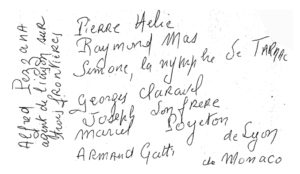 Alfred Pezzana
agent de liaison sur
trois frontières
Pierre Helie
Raymond Mas
Simone, la nymphe de TARNAC
Georges Claravel
Joseph son frere
Marcel Poyeton de Lyon
ARMAND Gatti de Monaco